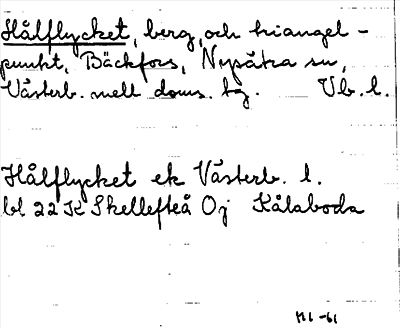 Hålflycket, berg, och triangel-
punkt, Bäckfors, Nysätra sn,
Västerb. mell doms. bg. Vb. l.
Hålflycket ek Västerb. l.
bl 22 K Skellefteå Oj Kålaboda
M6 -61